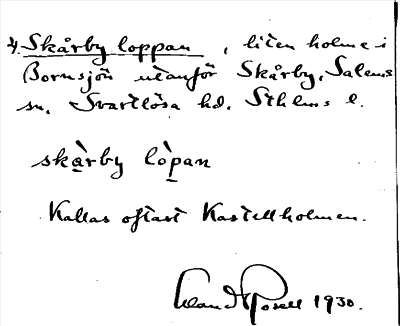 4. Skårby loppan, liten holme i
Bornsjön utanför Skårby, Salems
sn, Svartlösa hd. Sthlms l.
skàrby lòpan
Kallas oftast Kastellholmen.
1930.